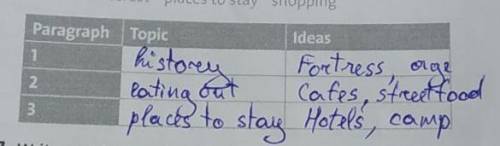 places to stay shopping
Paragraph Topic Ideas
1 historey Fortress,
2 eating out Cafes, streetfood
3 places to stay Hotels, camp